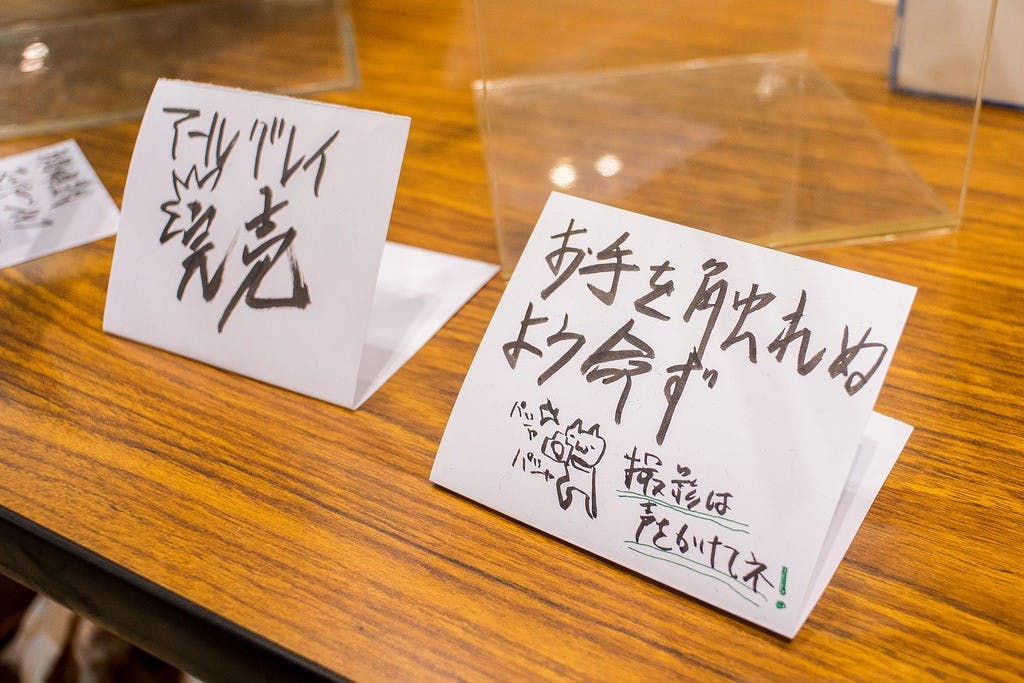 アールグレイ
完売
お手を触れぬ
よう命ず
パシャ
パシャ
撮影は
声をかけてネ!